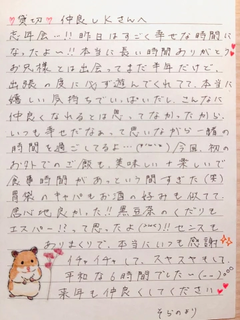 貸切 仲良しKさんへ
忘年会ー!!昨日はすごく幸せな時間に
なったよー!!本当に長い時間ありがとう
お兄様とは出会ってまだ半年だけど、
出張の度に必ず遊んでくれてて、本当に
嬉しい気持ちでいっぱいだし、こんなに
仲良くなれるとは思ってなかったから、
いつも幸せだなぁって思いながら一緒の
時間を過ごしてるよ…今回、初の
お外でのご飯も、美味しい+楽しいで
食事時間があっという間すぎた(笑)
胃袋のキャパもお酒の好みも似てて
居心地良かった!!黒豆茶のくだりも
エスパー!?って思ったよ!!センスも
ありまくりで、本当にいつも感謝
イチャイチャして、スヤスヤもして、
平和な6時間でしたー
来年も仲良くしてください
そらのより